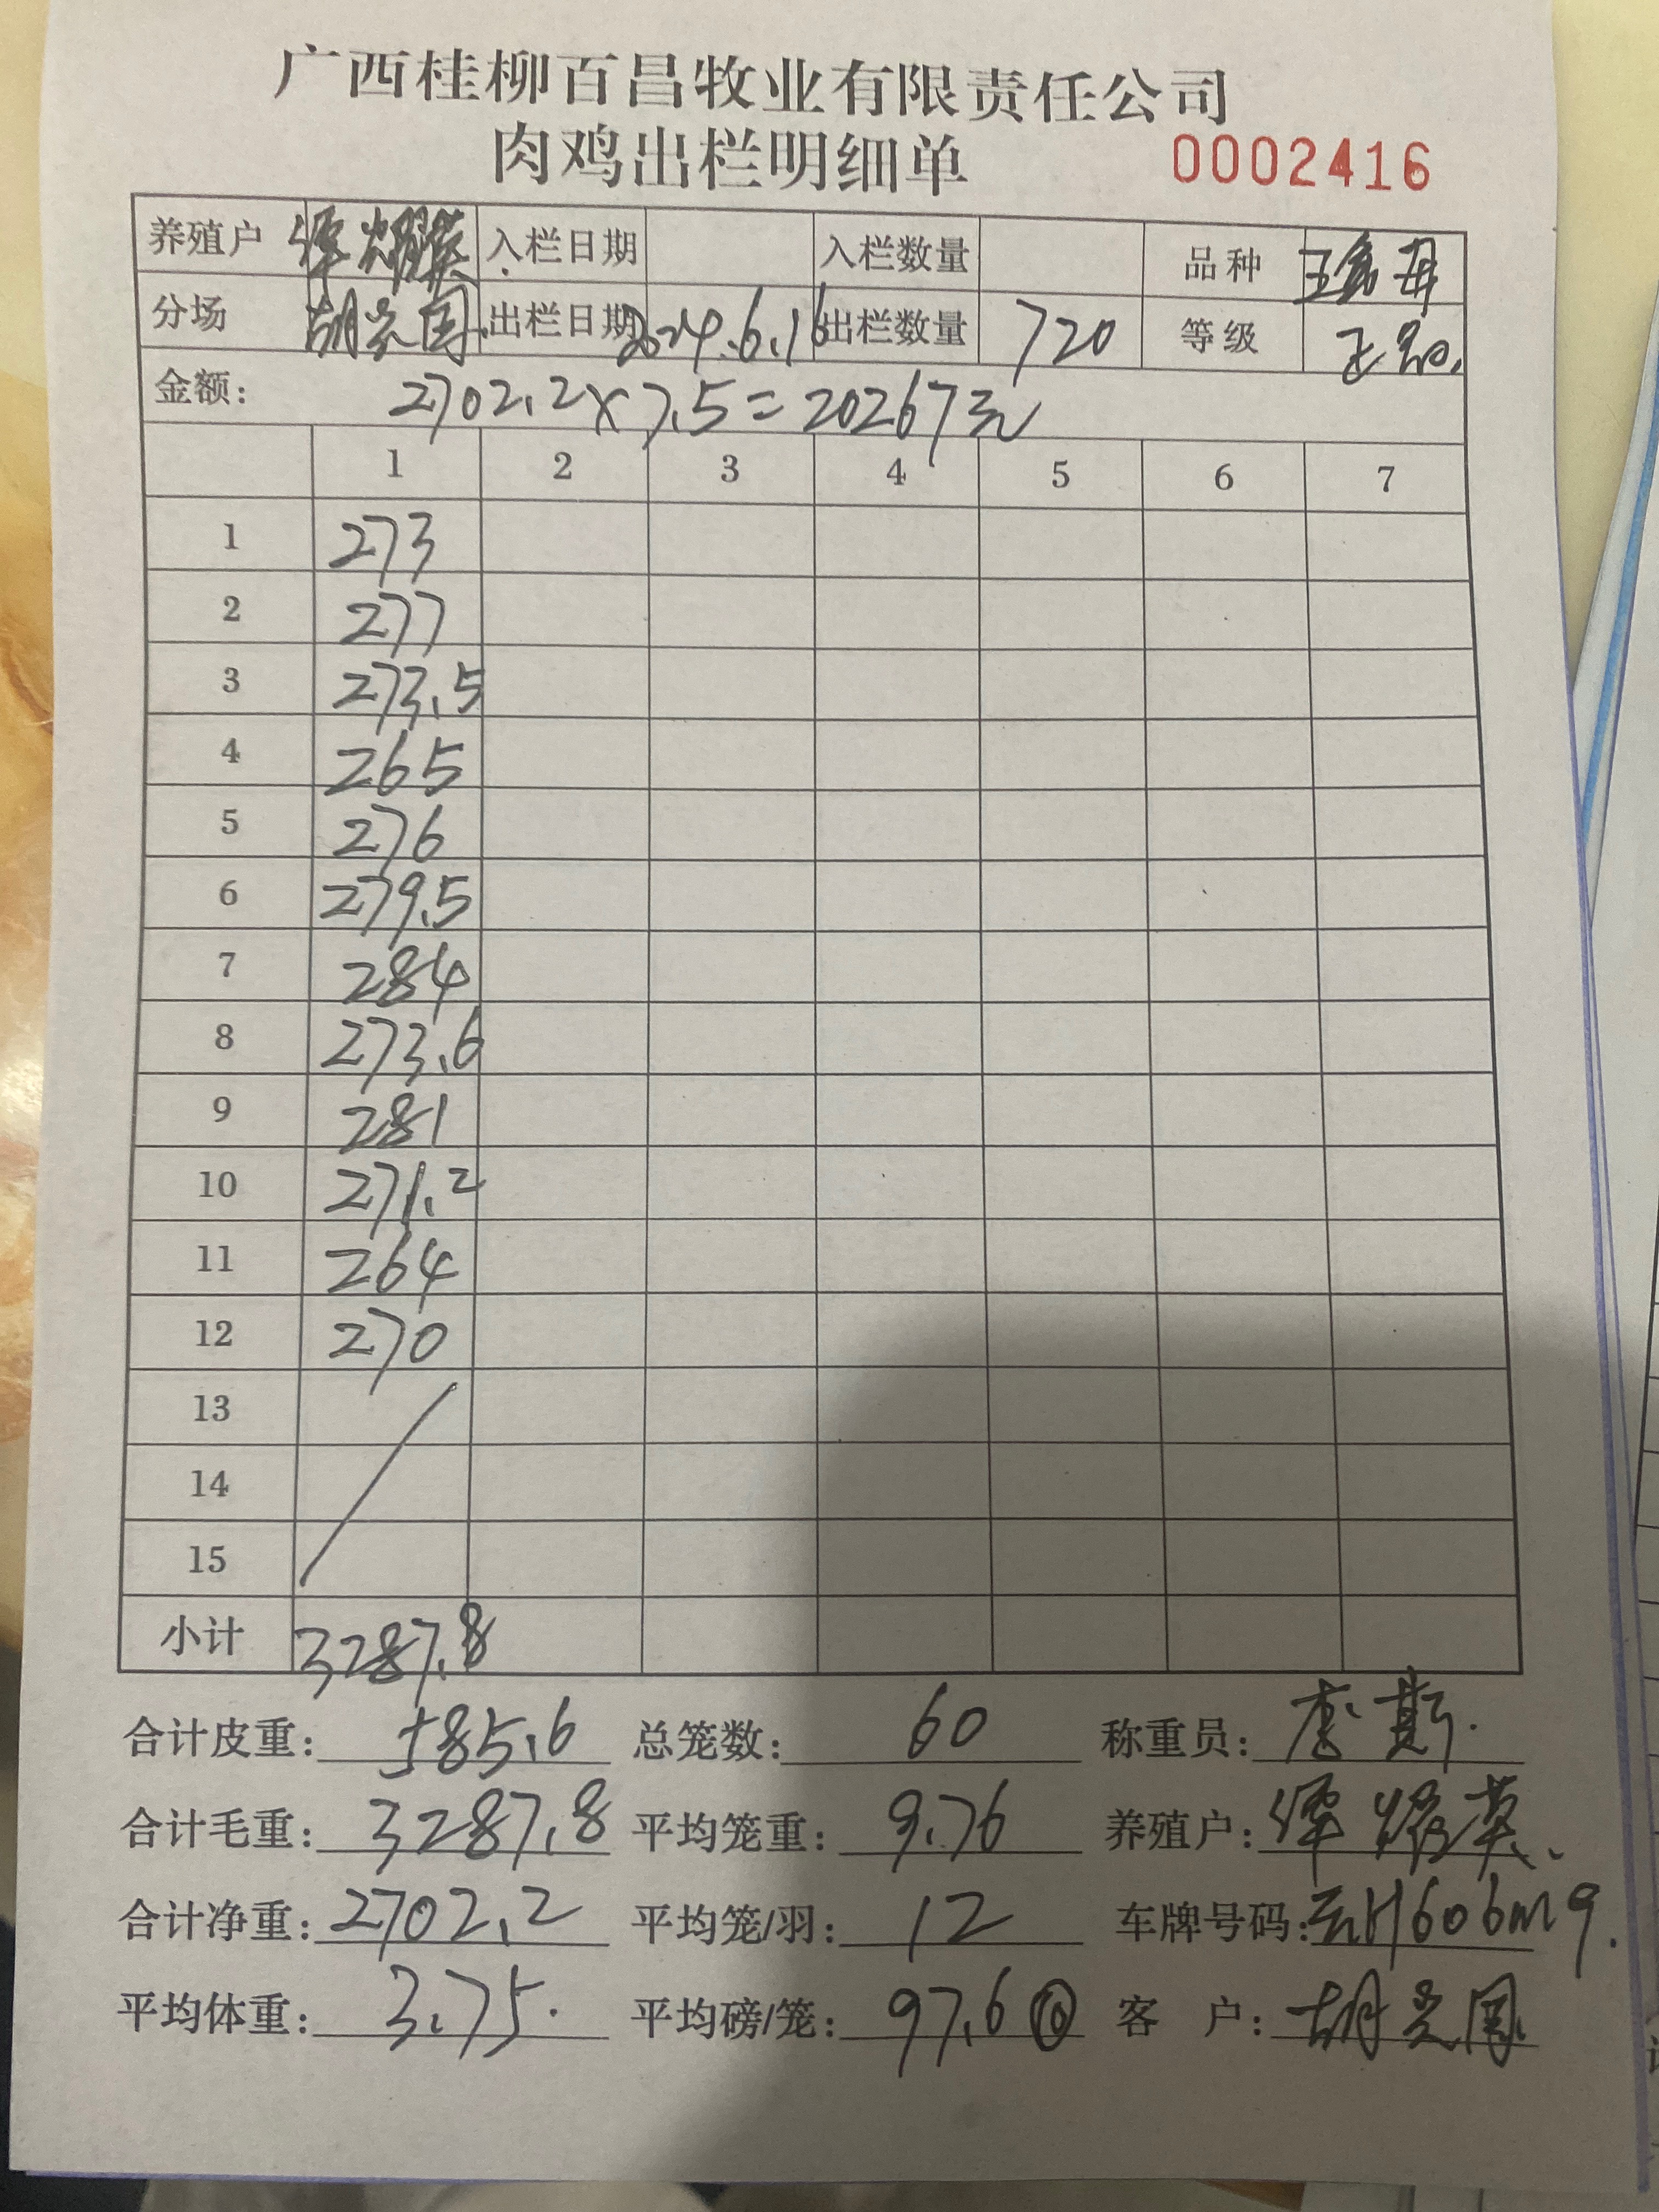 广西桂柳百昌牧业有限责任公司
肉鸡出栏明细单 0002416
养殖户 入栏日期 入栏数量 品种
分场 胡光国 出栏日期 2024.6.16 出栏数量 720 等级 正品
金额: 2702.2×7.5=20267元
1 2 3 4 5 6 7
1 273
2 277
3 273.5
4 265
5 276
6 279.5
7 284
8 273.6
9 281
10 271.2
11 264
12 270
13
14
15
小计 3287.8
合计皮重: 585.6 总笼数: 60 称重员: 李斯
合计毛重: 3287.8 平均笼重: 9.76 养殖户:
合计净重: 2702.2 平均笼/羽: 12 车牌号码: 云H606M9
平均体重: 3.75 平均磅/笼: 97.6 客 户: 胡光国